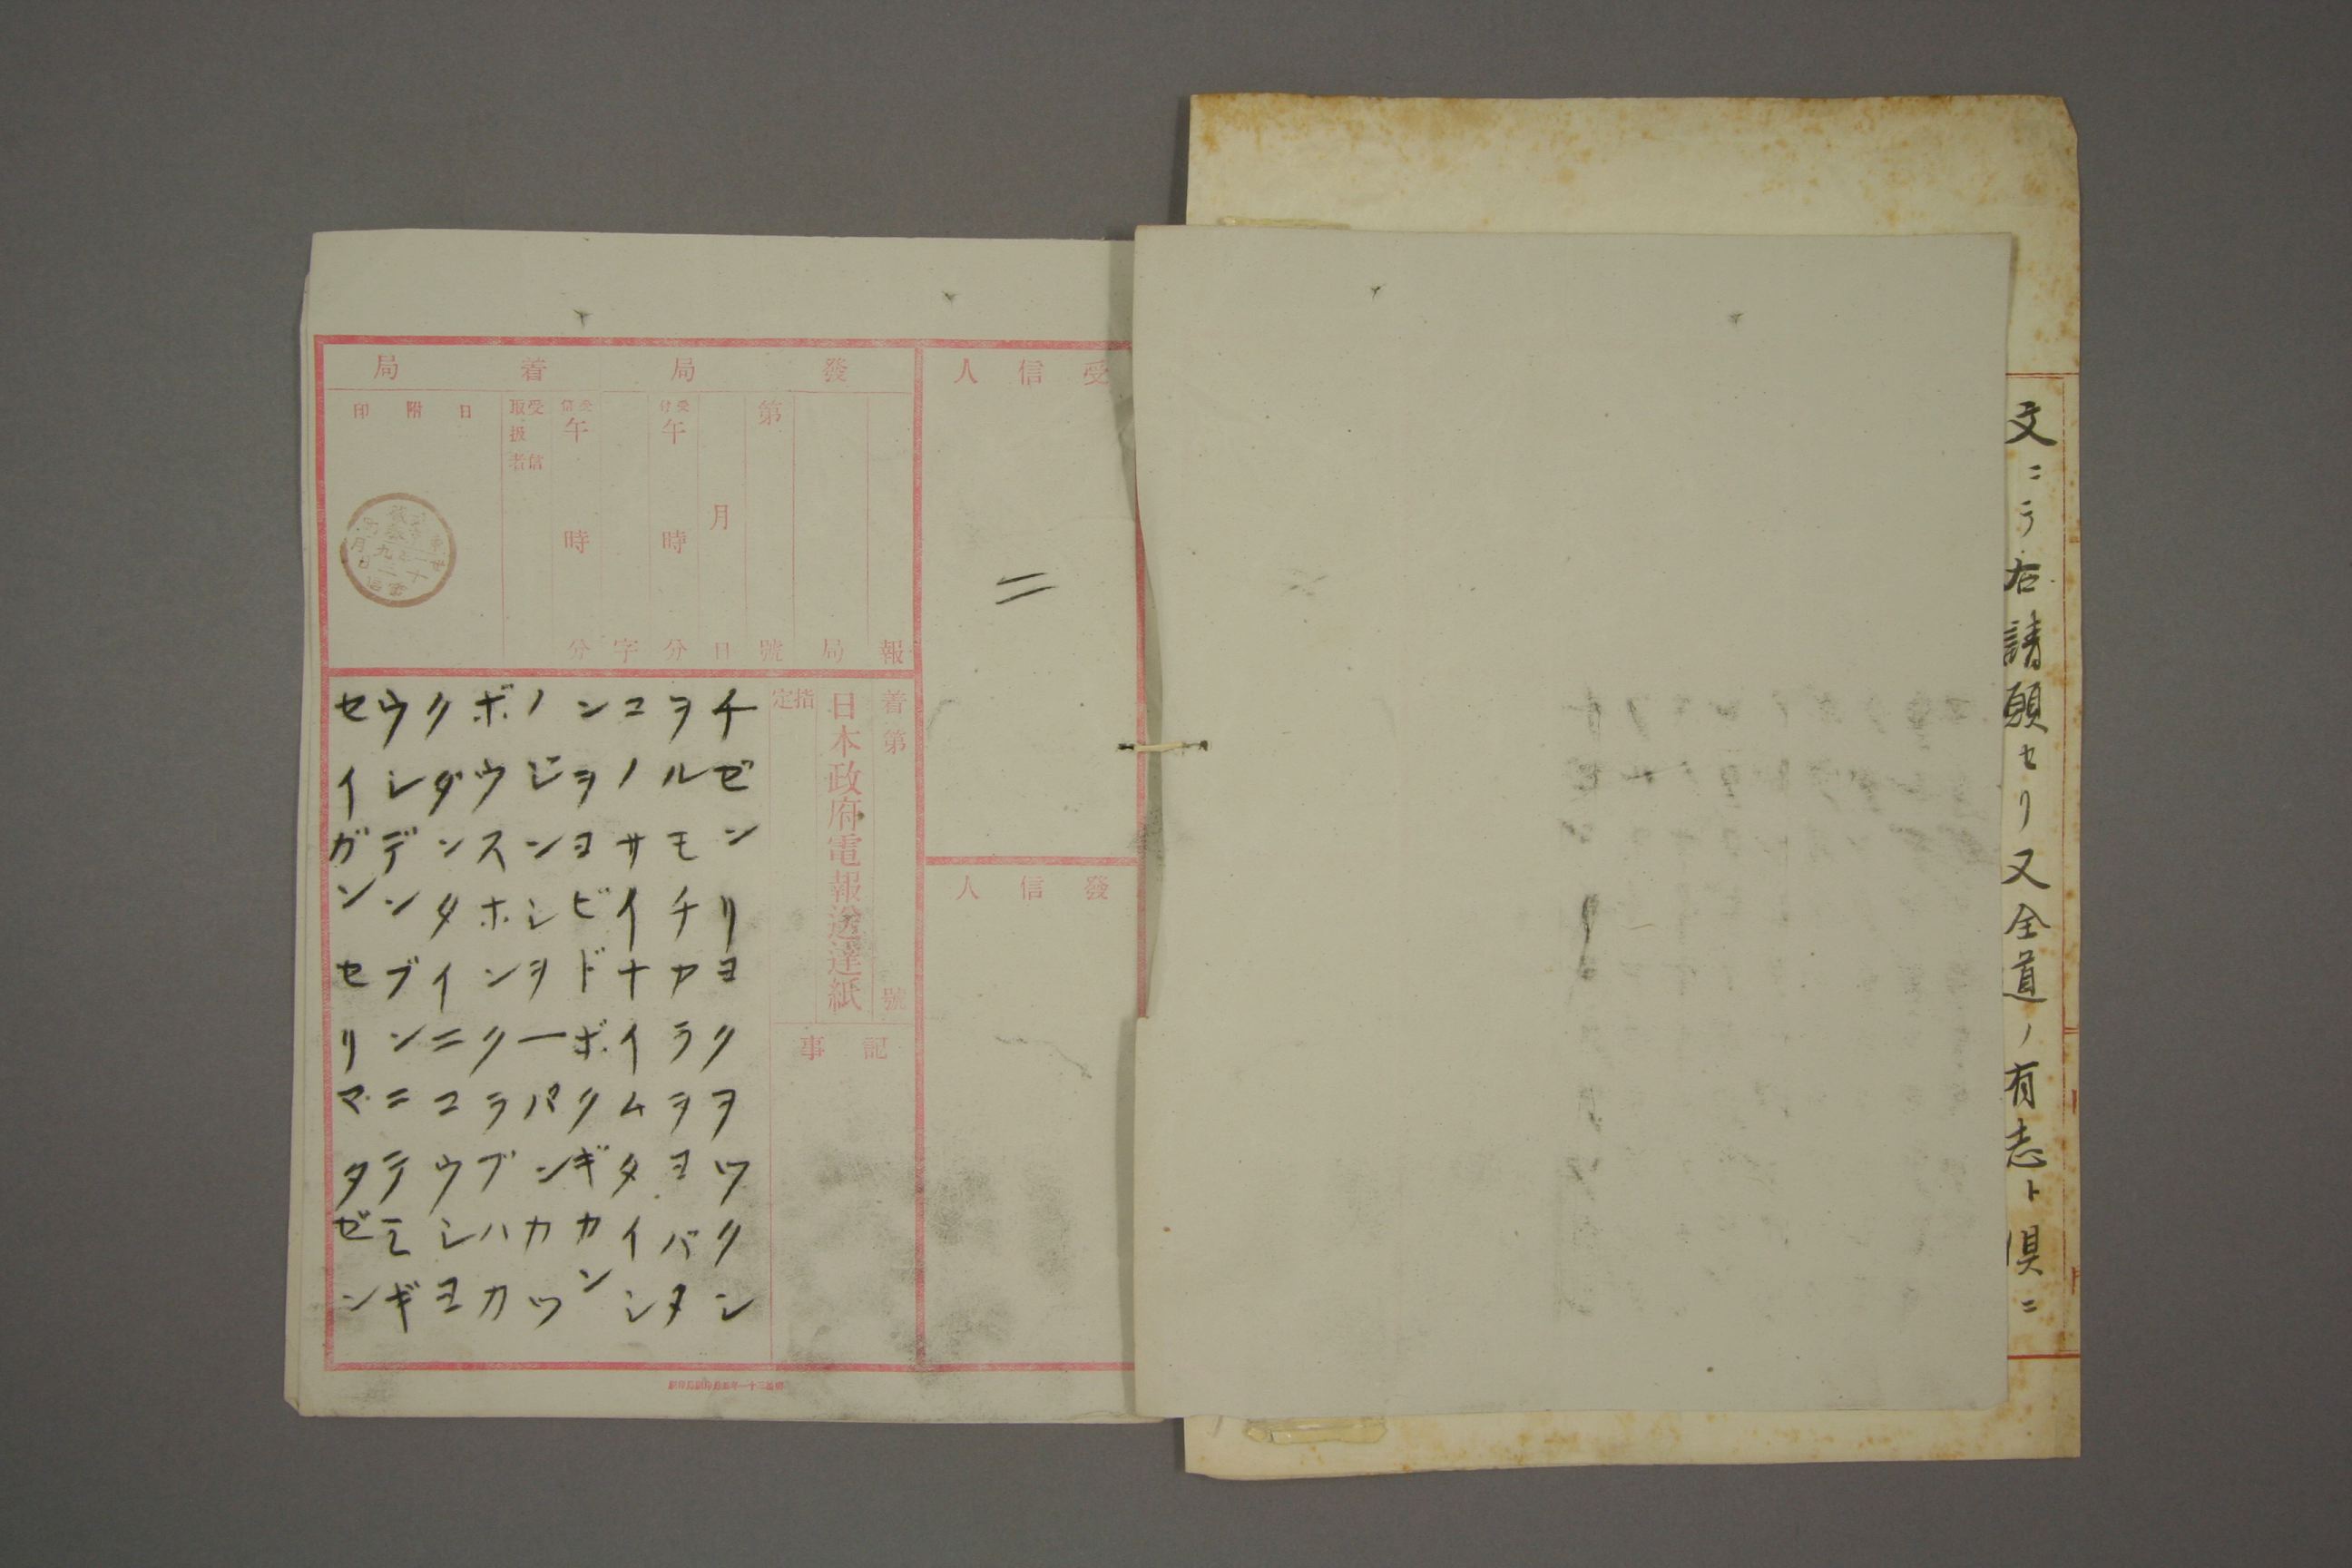 文ニテ右請願セリ又全道ノ有志ト倶ニ
受信人
二
發信人
發局
着局
報
局
第
號
月
日
受付
午
時
分
字
午
時
分
受信
取扱者
日附印
着第
號
日本政府電報送達紙
指定
記事
チゼンリヨクヲツクシ
ヲルモチカラヲヨバタ
コノサイナイムタイシ
ンヲヨビドボクギカン
ノジンシヲーパンカツ
ボウスホンクラブハカ
クダンタイニコウシヨ
ウシデンブンニテモギ
セイガンセリマタゼン